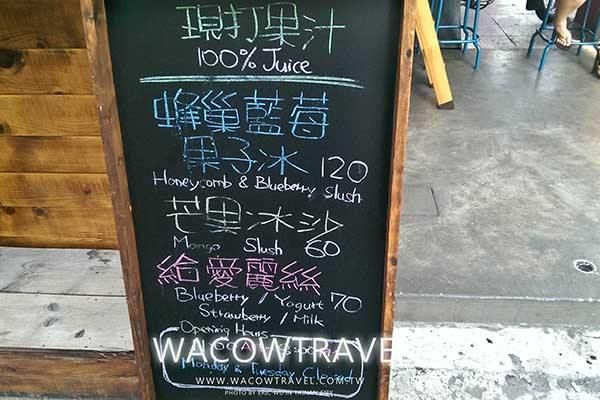 現打果汁
100% Juice
蜂巢藍莓
果子冰 120
Honeycomb & Blueberry Slush
芒果冰沙
Mango Slush 60
給愛麗絲
Blueberry / Yogurt 70
Strawberry / Milk
Opening Hours
WACOWTRAVEL
Monday & Tuesday Closed
WWW.WACOWTRAVEL.COM.TW
PHOTO BY ERIC WU IN TAINAN CITY